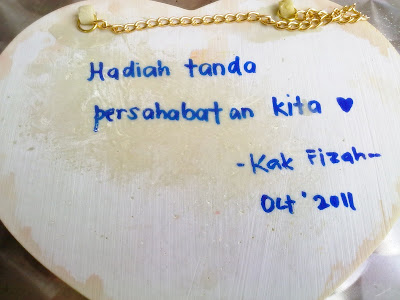 Hadiah tanda
persahabatan kita ♥
-Kak Fizah-
Oct '2011